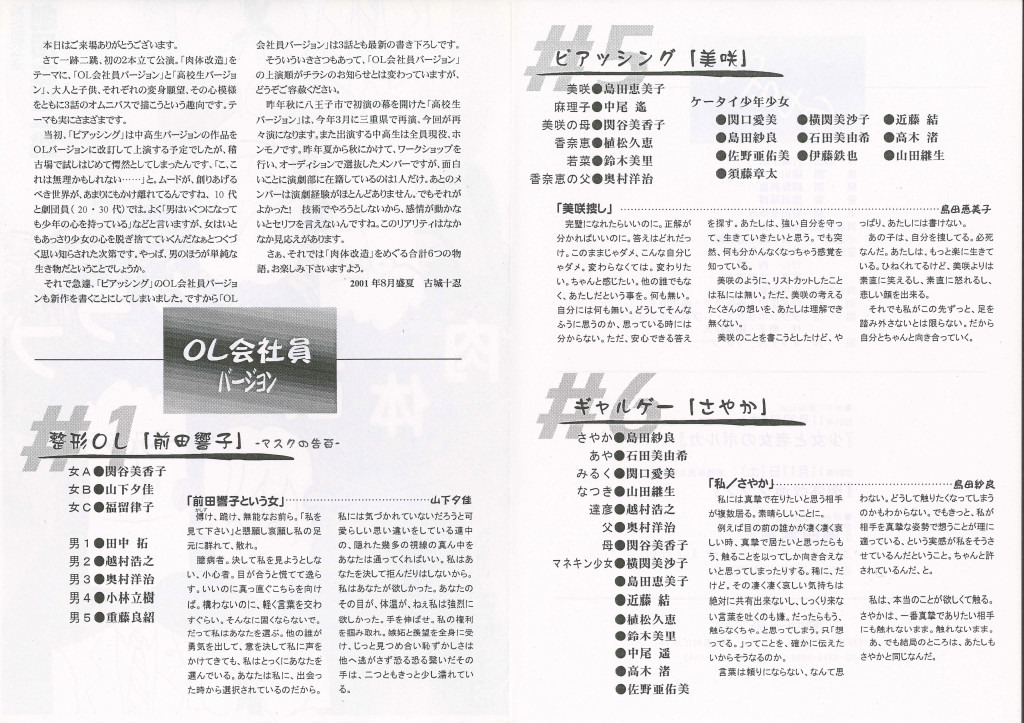 本日はご来場ありがとうございます。
さて一跡二跳、初の2本立て公演。「肉体改造」を
テーマに、「OL会社員バージョン」と「高校生バージョ
ン」、大人と子供、それぞれの変身願望、その心模様
をともに3話のオムニバスで描こうという趣向です。テ
ーマも実にさまざまです。
当初、「ピアッシング」は中高生バージョンの作品を
OLバージョンに改訂して上演する予定でしたが、稽
古場で試しはじめて愕然としてしまったんです、「こ、こ
れは無理かもしれない……」と。ムードが、創りあげる
べき世界が、あまりにもかけ離れてるんですね、10代
と劇団員(20・30代)では。よく「男はいくつになって
も少年の心を持っている」などと言いますが、女はいと
もあっさり少女の心を脱ぎ捨てていくんだなぁとつくづ
く思い知らされた次第です。やっぱ、男のほうが単純な
生き物だということでしょうか。
それで急遽、「ピアッシング」のOL会社員バージョ
ンも新作を書くことにしてしまいました。ですから「OL
会社員バージョン」は3話とも最新の書き下ろしです。
そういういきさつもあって、「OL会社員バージョン」
の上演順がチラシのお知らせとは変わっていますが、
どうぞご容赦ください。
昨年秋に八王子市で初演の幕を開けた「高校生
バージョン」は、今年3月に三重県で再演、今回が再
々演になります。また出演する中高生は全員現役、ホ
ンモノです。昨年夏から秋にかけて、ワークショップを
行い、オーディションで選抜したメンバーですが、面白
いことに演劇部に在籍しているのは1人だけ。あとのメ
ンバーは演劇経験がほとんどありません。でもそれが
よかった! 技術でやろうとしないから、感情が動かな
いとセリフを言えないんですね。このリアリティはなか
なか見応えがあります。
さぁ、それでは「肉体改造」をめぐる合計6つの物
語。お楽しみ下さいますよう。
2001年8月盛夏 古城十忍
OL会社員
バージョン
#1
整形OL「前田響子」-マスクの告白-
女A●関谷美香子
女B●山下夕佳
女C●福留律子
男1●田中 拓
男2●越村浩之
男3●奥村洋治
男4●小林立樹
男5●重藤良紹
「前田響子という女」…………………………山下夕佳
傅け、跪け、無能なお前ら。「私を
見て下さい」と懇願し哀願し私の足
元に群れて、散れ。
臆病者。決して私を見ようとしな
い、小心者。目が合うと慌てて逸ら
す。いいのに真っ直ぐこちらを向け
ば。構わないのに、軽く言葉を交わ
すぐらい。そんなに固くならないで。
だって私はあなたを選ぶ。他の誰が
勇気を出して、意を決して私に声を
かけてきても、私はとっくにあなたを
選んでいる。あなたは私に、出会っ
た時から選択されているのだから。
私には気づかれていないだろうと可
愛らしい思い違いをしている連中
の、隠れた幾多の視線の真ん中を
あなたは通ってくればいい。私はあ
なたを決して拒んだりはしないから。
私はあなたが欲しかった。あなたの
その目が、体温が、ねえ私は強烈に
欲しかった。手を伸ばせ。私の権利
を掴み取れ。嫉妬と羨望を全身に受
け、じっと見つめ合い恥ずかしさは
他へ逃がさず恐る恐る繋いだその
手は、二つともきっと少し濡れてい
る。
#5
ピアッシング「美咲」
美咲●島田恵美子
麻理子●中尾 遙
美咲の母●関谷美香子
香奈恵●植松久恵
若菜●鈴木美里
香奈恵の父●奥村洋治
ケータイ少年少女
●関口愛美 ●横関美沙子 ●近藤 結
●島田紗良 ●石田美由希 ●高木 渚
●佐野亜佑美 ●伊藤鉄也 ●山田継生
●須藤章太
「美咲捜し」…………………………島田恵美子
完璧になれたらいいのに。正解が
分かればいいのに。答えはどれだっ
け。このままじゃダメ、こんな自分じ
ゃダメ。変わらなくては。変わりた
い。ちゃんと感じたい。他の誰でもな
く、あたしだという事を。何も無い。
自分には何も無い。どうしてそんな
ふうに思うのか、思っている時には
分からない。ただ、安心できる答え
を探す。あたしは、強い自分を守っ
て、生きていきたいと思う。でも突
然、何も分かんなくなっちゃう感覚を
知っている。
美咲のように、リストカットしたこと
は私には無い。ただ、美咲の考える
たくさんの想いを、あたしは理解でき
無くない。
美咲のことを書こうとしたけど、や
っぱり、あたしには書けない。
あの子は、自分を捜してる。必死
なんだ。あたしは、もっと楽に生きて
いる。ひねくれてるけど、美咲よりは
素直に笑えるし、素直に怒れるし、
悲しい顔を出来る。
それでも私がこの先ずっと、足を
踏み外さないとは限らない。だから
自分とちゃんと向き合っていく。
#6
ギャルゲー「さやか」
さやか●島田紗良
あや●石田美由希
みるく●関口愛美
なつき●山田継生
達彦●越村浩之
父●奥村洋治
母●関谷美香子
マネキン少女●横関美沙子
●島田恵美子
●近藤 結
●植松久恵
●鈴木美里
●中尾 遙
●高木 渚
●佐野亜佑美
「私/さやか」…………………………島田紗良
私には真摯で在りたいと思う相手
が複数居る。素晴らしいことに。
例えば目の前の誰かが凄く凄く哀
しい時、真摯で居たいと思ったらも
う、触ることを以ってしか向き合えな
いと思ってしまったりする。稀に、だ
けど。その凄く凄く哀しい気持ちは
絶対に共有出来ないし、しっくり来な
い言葉を吐くのも嫌。だったらもう、
触らなくちゃ。と思ってしまう。只「想
ってる。」ってことを、確かに伝えた
いからそうなるのか。
言葉は頼りにならない、なんて思
わない。どうして触りたくなってしまう
のかもわからない。でもきっと、私が
相手を真摯な姿勢で想うことが理に
適っている、という実感が私をそうさ
せているんだということ。ちゃんと許
されているんだ、と。
私は、本当のことが欲しくて触る。
さやかは、一番真摯でありたい相手
にも触れないまま。触れないまま。
あ、でも結局のところは、あたしも
さやかと同じなんだ。